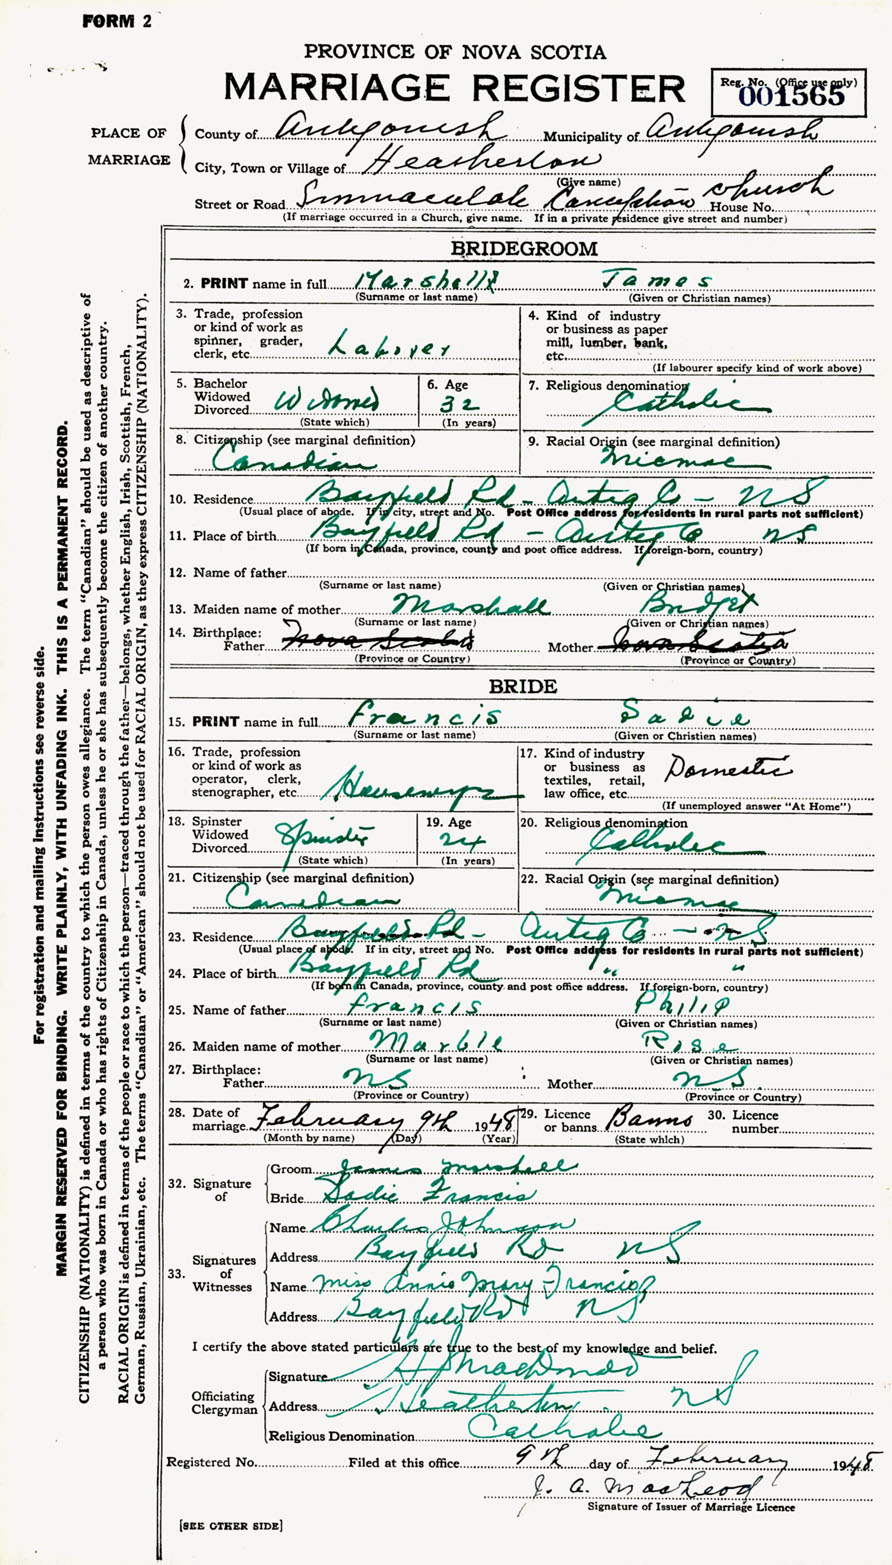 FORM 2
PROVINCE OF NOVA SCOTIA
MARRIAGE REGISTER
Reg. No. (Office use only)
001565
PLACE OF MARRIAGE
County of Antigonish Municipality of Antigonish
City, Town or Village of Heatherton
(Give name)
Street or Road Immaculate Conception Church House No.
(If marriage occurred in a Church, give name. If in a private residence give street and number)
BRIDEGROOM
2. PRINT name in full Marshall James
(Surname or last name) (Given or Christian names)
3. Trade, profession 4. Kind of industry
or kind of work as or business as paper
spinner, grader, mill, lumber, bank,
clerk, etc. Laborer etc.
(If labourer specify kind of work above)
5. Bachelor 6. Age 7. Religious denomination
Widowed Widowed 32 Catholic
Divorced
(State which) (In years)
8. Citizenship (see marginal definition) 9. Racial Origin (see marginal definition)
Canadian Micmac
10. Residence Bayfield Rd - Antig Co - NS
(Usual place of abode. If in city, street and No. Post Office address for residents in rural parts not sufficient)
11. Place of birth Bayfield Rd - Antig Co NS
(If born in Canada, province, county and post office address. If foreign-born, country)
12. Name of father
(Surname or last name) (Given or Christian names)
13. Maiden name of mother Marshall Bridget
(Surname or last name) (Given or Christian names)
14. Birthplace:
Father Nova Scotia Mother Nova Scotia
(Province or Country) (Province or Country)
BRIDE
15. PRINT name in full Francis Sadie
(Surname or last name) (Given or Christian names)
16. Trade, profession 17. Kind of industry
or kind of work as or business as Domestic
operator, clerk, textiles, retail,
stenographer, etc. law office, etc.
(If unemployed answer "At Home")
18. Spinster 19. Age 20. Religious denomination
Widowed Spinster 24 Catholic
Divorced
(State which) (In years)
21. Citizenship (see marginal definition) 22. Racial Origin (see marginal definition)
Canadian Micmac
23. Residence Bayfield Rd - Antig Co - NS
(Usual place of abode. If in city, street and No. Post Office address for residents in rural parts not sufficient)
24. Place of birth Bayfield Rd " "
(If born in Canada, province, county and post office address. If foreign-born, country)
25. Name of father Francis Philip
(Surname or last name) (Given or Christian names)
26. Maiden name of mother Marble Rose
(Surname or last name) (Given or Christian names)
27. Birthplace:
Father NS Mother NS.
(Province or Country) (Province or Country)
28. Date of marriage February 9th 1948 29. Licence or banns Banns 30. Licence number
(Month by name) (Day) (Year) (State which)
32. Signature of
Groom James Marshall
Bride Sadie Francis
33. Signatures of Witnesses
Name Charles Johnson
Address Bayfield Rd NS
Name Miss Annie Mary Francis
Address Bayfield Rd NS
I certify the above stated particulars are true to the best of my knowledge and belief.
Officiating Clergyman
Signature MacDonald
Address Heatherton NS
Religious Denomination Catholic
Registered No. Filed at this office 9th day of February 1948
J. A. MacLeod
Signature of Issuer of Marriage Licence
[SEE OTHER SIDE]
For registration and mailing instructions see reverse side.
MARGIN RESERVED FOR BINDING. WRITE PLAINLY, WITH UNFADING INK. THIS IS A PERMANENT RECORD.
CITIZENSHIP (NATIONALITY) is defined in terms of the country to which the person owes allegiance. The term "Canadian" should be used as descriptive of
a person who was born in Canada or who has rights of Citizenship in Canada, unless he or she has subsequently become the citizen of another country.
RACIAL ORIGIN is defined in terms of the people or race to which the person—traced through the father—belongs, whether English, Irish, Scottish, French,
German, Russian, Ukrainian, etc. The terms "Canadian" or "American" should not be used for RACIAL ORIGIN, as they express CITIZENSHIP (NATIONALITY).